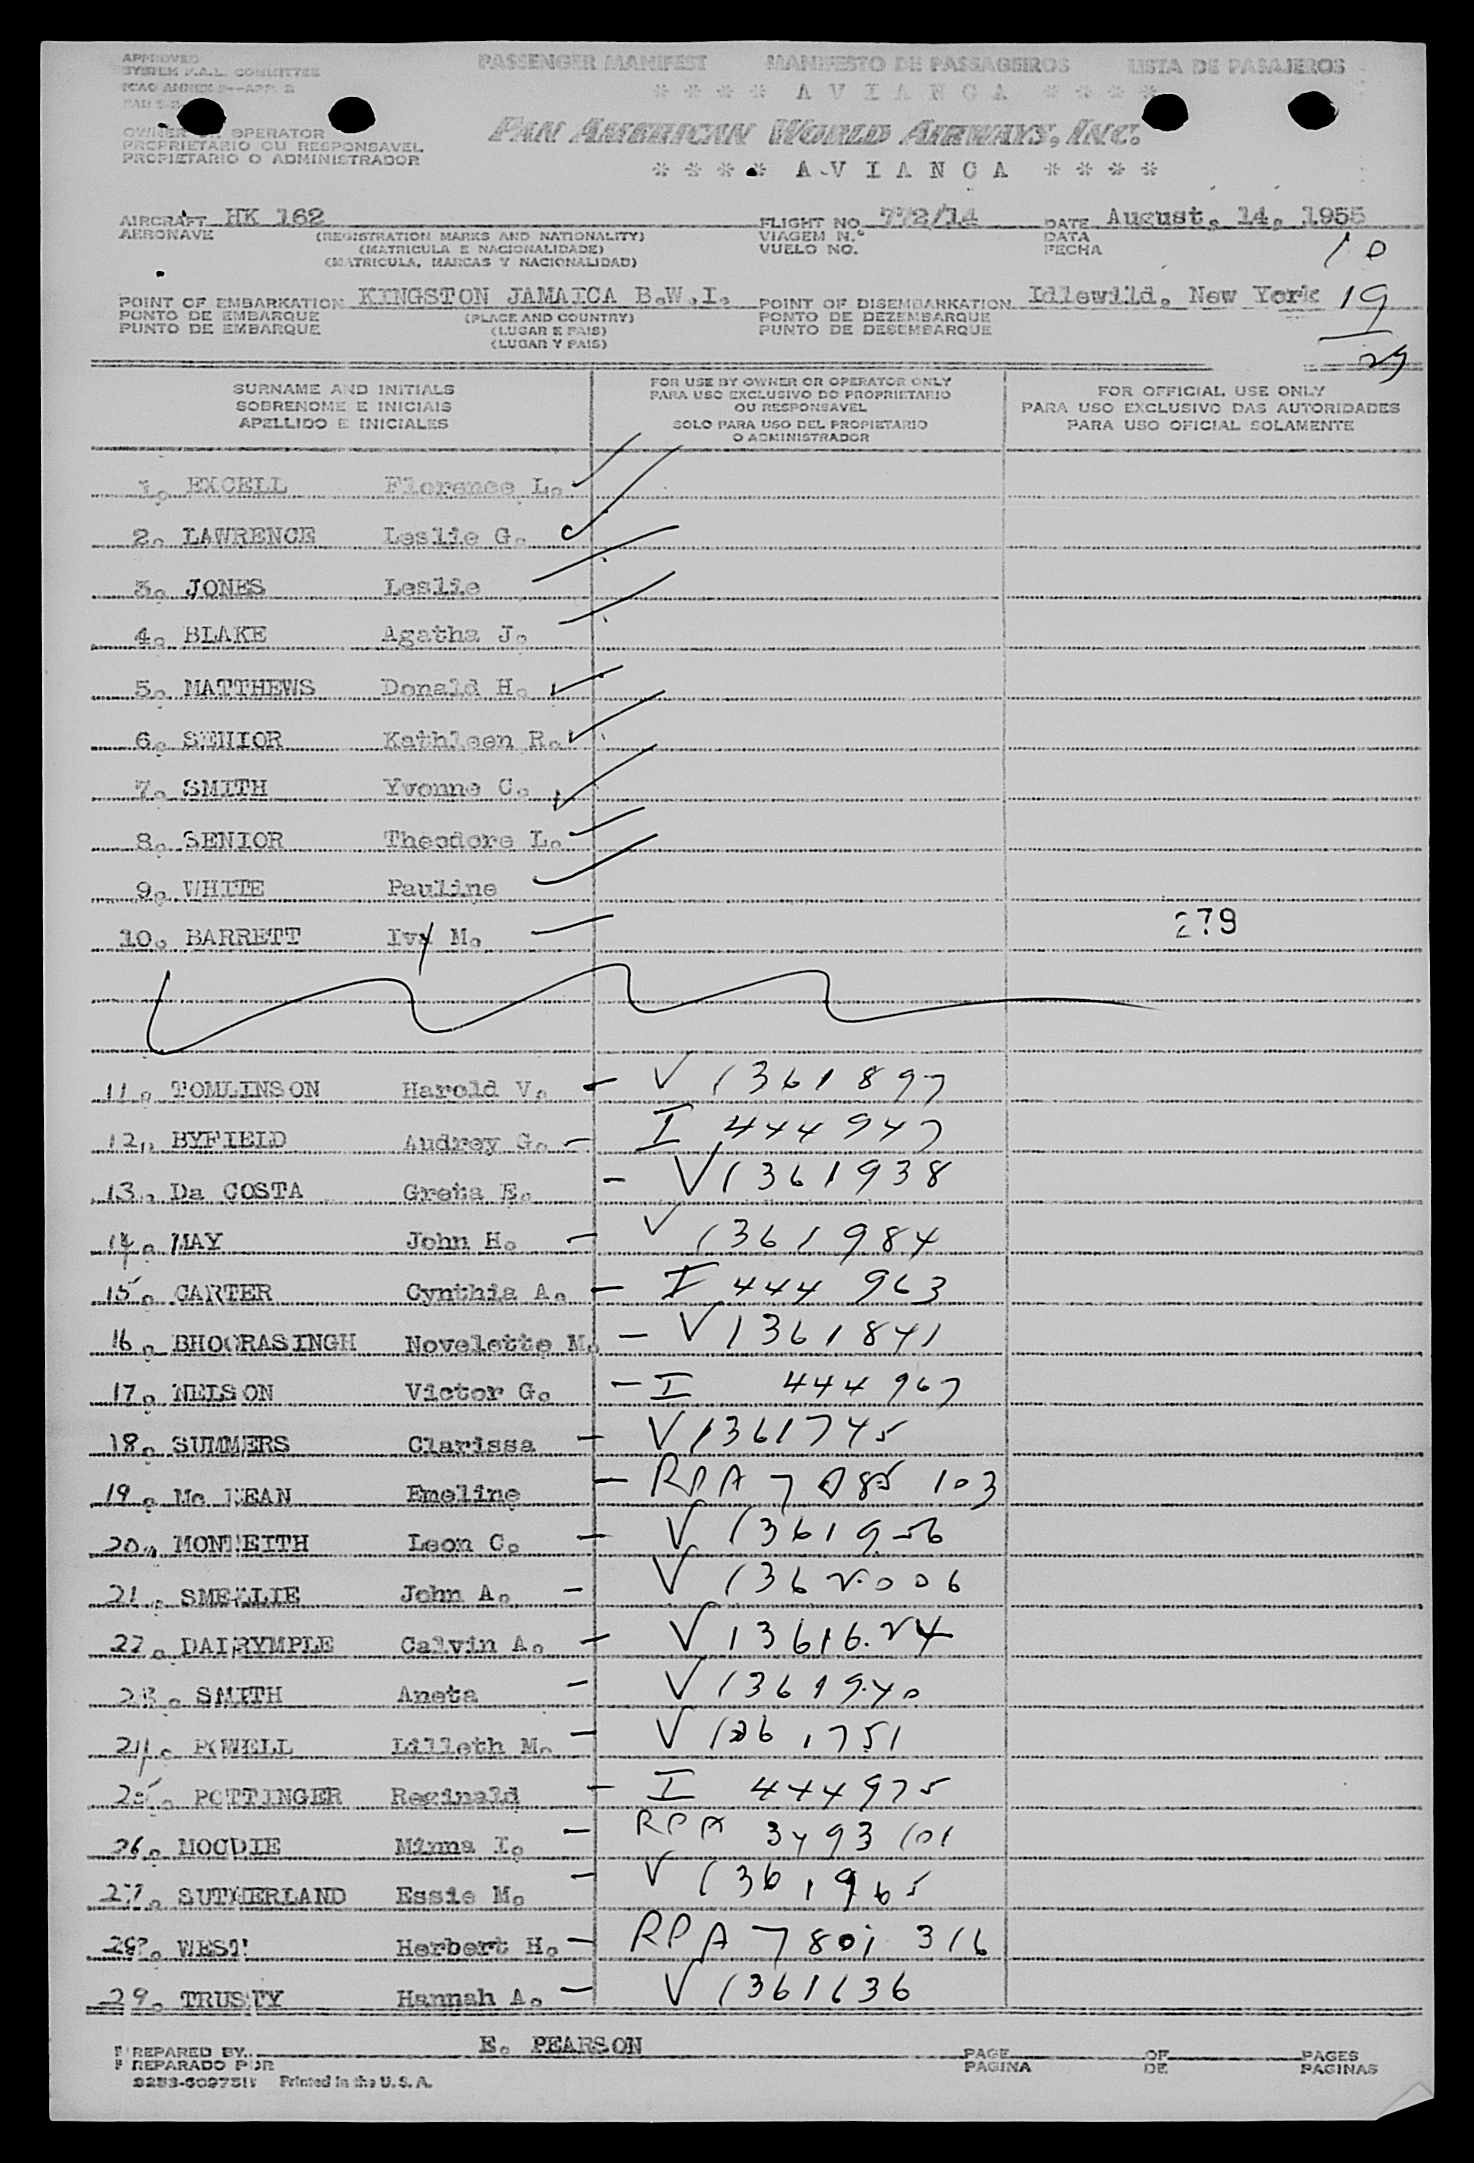 APPROVED
SYSTEM F.A.L. COMMITTEE
ICAO ANNEX 9--APP. 2
PASSENGER MANIFEST MANIFESTO DE PASSAGEIROS LISTA DE PASAJEROS
* * * * A V I A N C A * * * *
OWNER OR OPERATOR
PROPRIETARIO OU RESPONSAVEL
PROPIETARIO O ADMINISTRADOR
PAN AMERICAN WORLD AIRWAYS, INC.
* * * * A V I A N C A * * * *
AIRCRAFT HK 162 FLIGHT NO. 772/14 DATE August, 14, 1955
AERONAVE (REGISTRATION MARKS AND NATIONALITY) VIAGEM N.º DATA
(MATRICULA E NACIONALIDADE) VUELO NO. FECHA
(MATRICULA, MARCAS Y NACIONALIDAD)
10
POINT OF EMBARKATION KINGSTON JAMAICA B.W.I. POINT OF DISEMBARKATION Idlewild, New York 19
PONTO DE EMBARQUE (PLACE AND COUNTRY) PONTO DE DEZEMBARQUE
PUNTO DE EMBARQUE (LUGAR E PAIS) PUNTO DE DESEMBARQUE
(LUGAR Y PAIS)
29
SURNAME AND INITIALS
SOBRENOME E INICIAIS
APELLIDO E INICIALES
FOR USE BY OWNER OR OPERATOR ONLY
PARA USO EXCLUSIVO DO PROPRIETARIO
OU RESPONSAVEL
SOLO PARA USO DEL PROPIETARIO
O ADMINISTRADOR
FOR OFFICIAL USE ONLY
PARA USO EXCLUSIVO DAS AUTORIDADES
PARA USO OFICIAL SOLAMENTE
1. EXCELL Florence L.
2. LAWRENCE Leslie G.
3. JONES Leslie
4. BLAKE Agatha J.
5. MATTHEWS Donald H.
6. SENIOR Kathleen R.
7. SMITH Yvonne C.
8. SENIOR Theodore L.
9. WHITE Pauline
10. BARRETT Ivy M. 279
11. TOMLINSON Harold V. - V 1361897
12. BYFIELD Audrey G. - I 444947
13. Da COSTA Greta E. - V1361938
14. MAY John H. - V 1361984
15. CARTER Cynthia A. - I 444 963
16. BHOORASINGH Novelette M. - V 1361841
17. NELSON Victor G. - I 444967
18. SUMMERS Clarissa - V1361745
19. Mc KEAN Emeline - RPA 7 085 103
20. MONTEITH Leon C. - V 1361956
21. SMELLIE John A. - V 1362006
22. DALRYMPLE Calvin A. - V 1361624
23. SMITH Aneta - V 1361940
24. POWELL Lilleth M. - V 1361751
25. POTTINGER Reginald - I 444975
26. MOODIE Minna I. - RPA 3493 101
27. SUTHERLAND Essie M. - V 1361965
28. WEST Herbert H. - RPA 7801 316
29. TRUSTY Hannah A. - V 1361636
PREPARED BY E. PEARSON PAGE OF PAGES
PREPARADO POR PAGINA DE PAGINAS
Printed in the U.S.A.